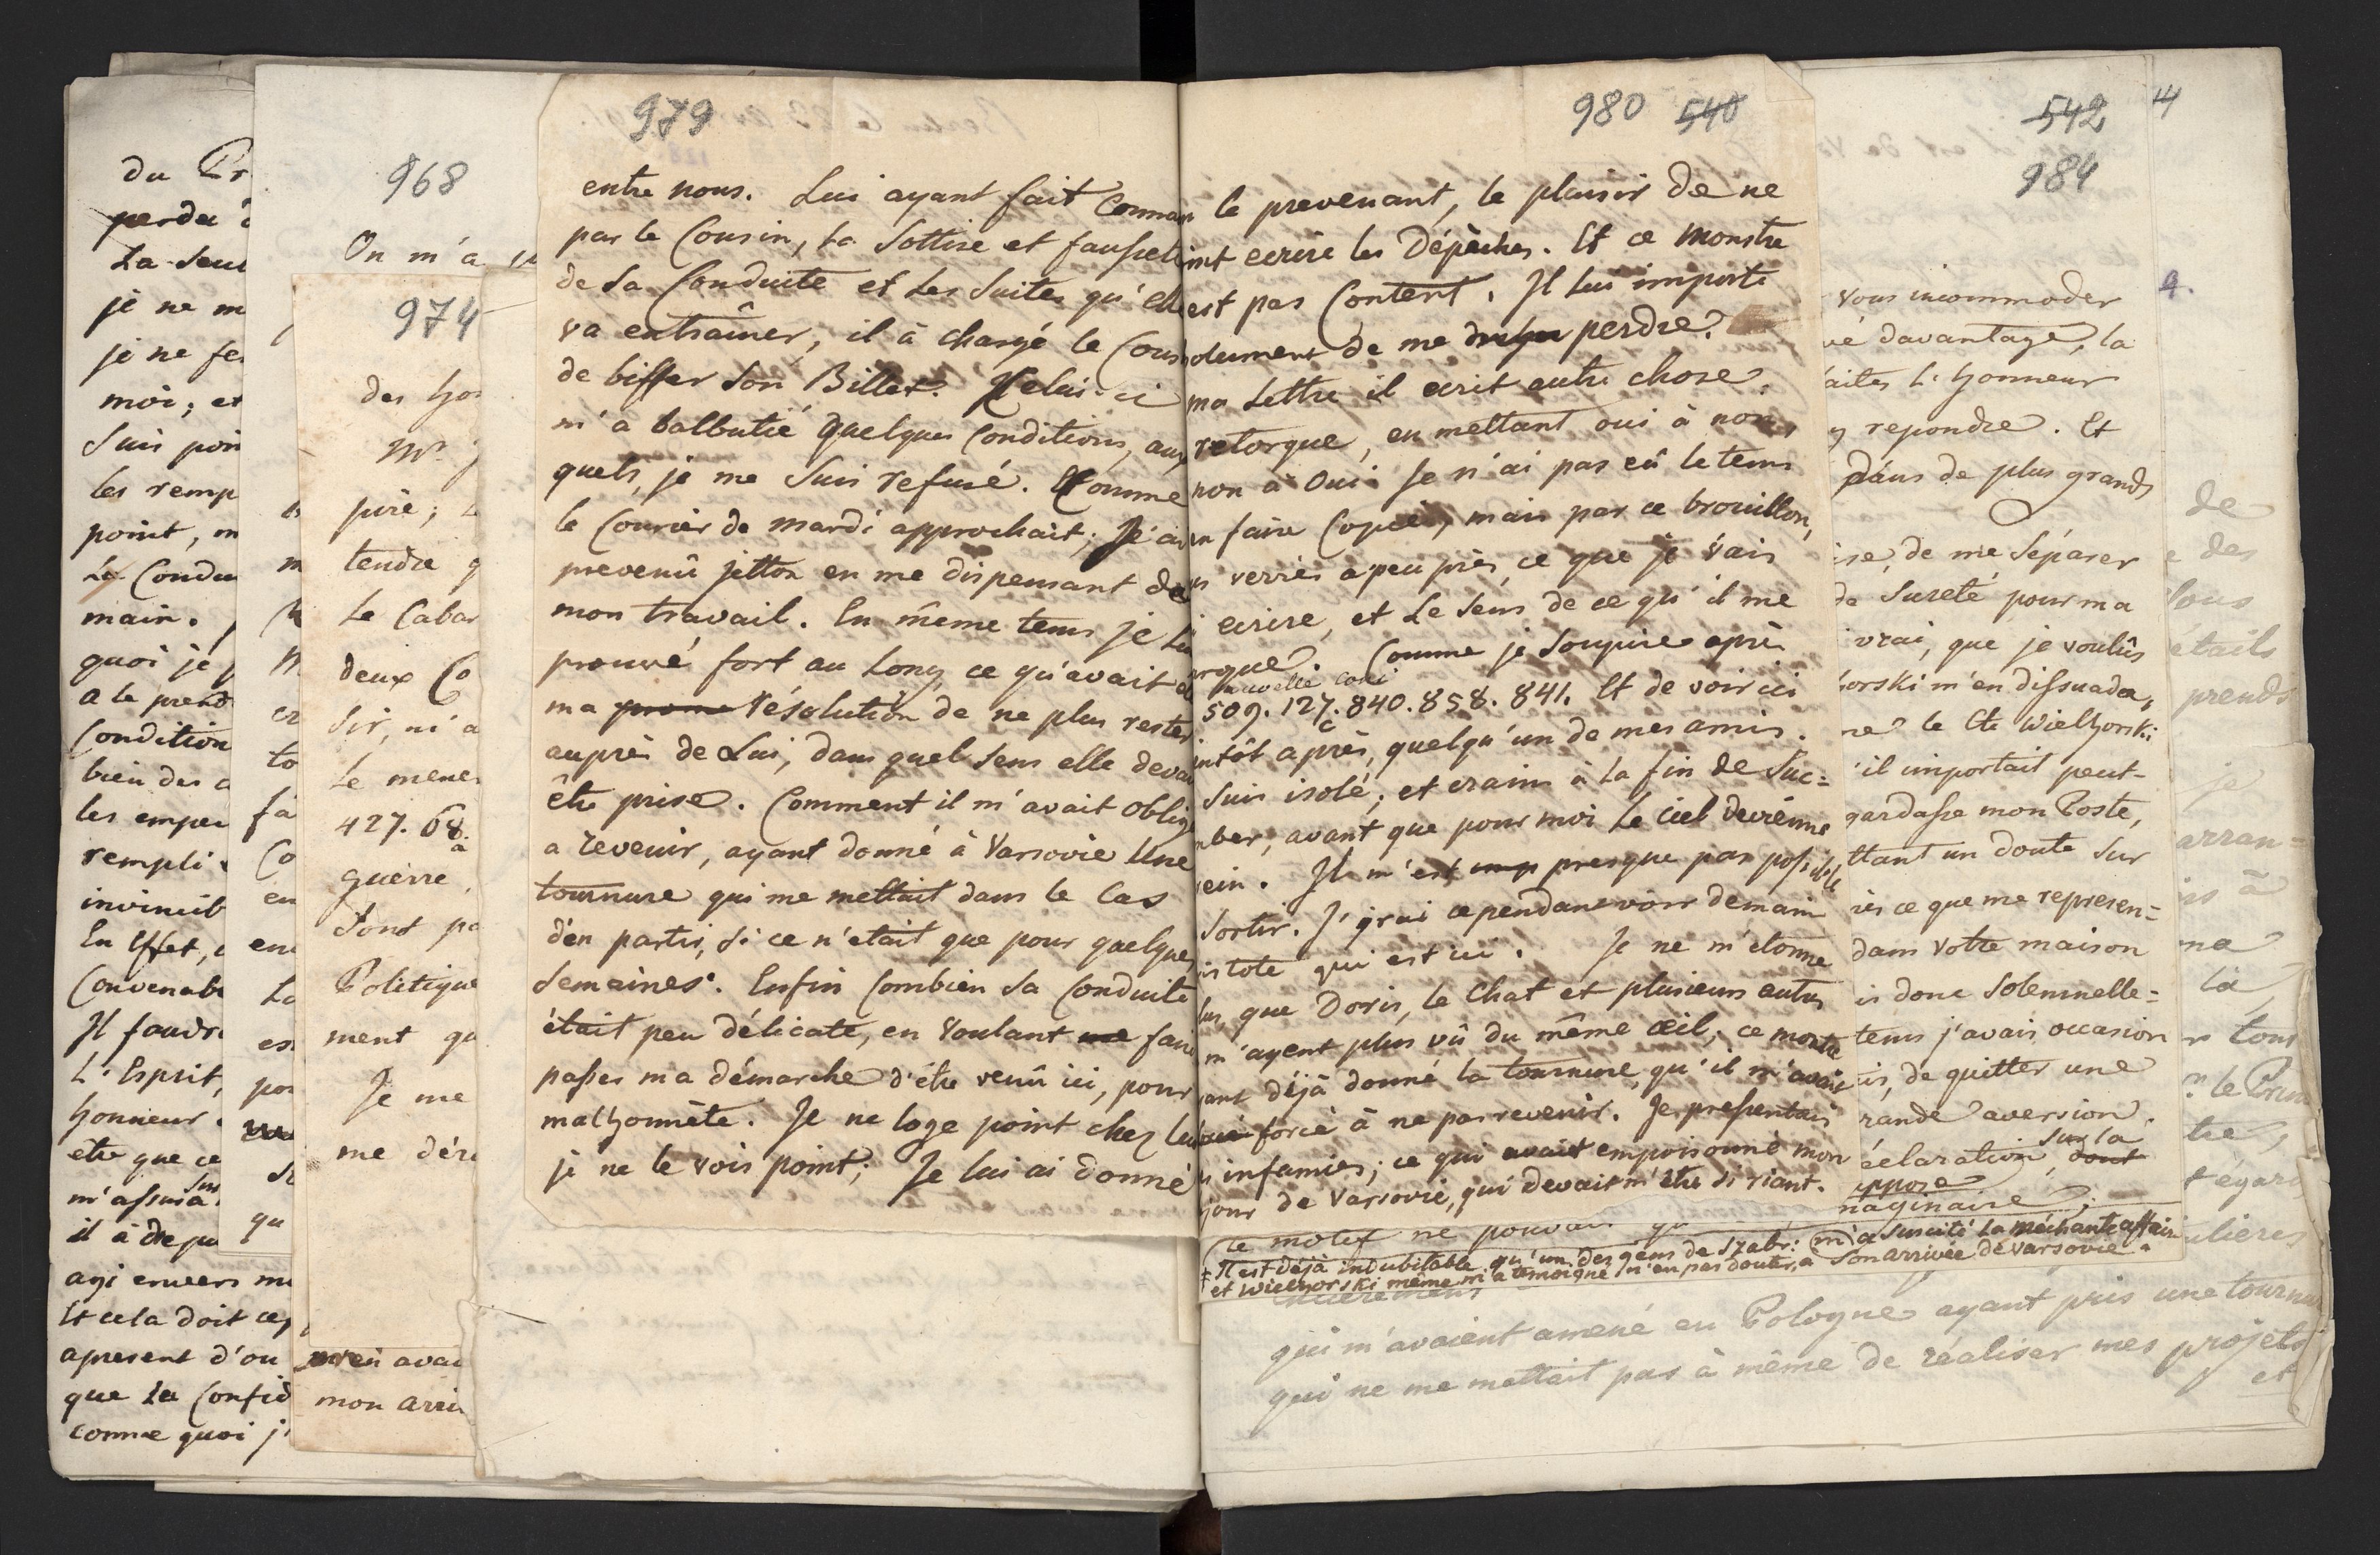 du Pr
perdu
La seul
je ne m
je ne fe
moi; et
Suis poin
les remp
point, m
La Condu
main.
quoi je
a le prend
Condition
bien des
les emper
rempli
invincib
En Effet,
Convenab
Il faudr
L'Esprit,
honneur
être que ce
m'assura
il à depu
agi envers m
Et cela doit cep
apresent d'ou
que La Confid
comme quoi j
968
On m'a
974
des ho
Mr.
pire;
tendre q
Le Cabar
deux Co
Sir, m'a
Le mener
427. 68.
a
guerre
dont pa
Politique
ment qu
Je me
me dére
avai
mon arri
979
entre nous. Lui ayant fait Connai
par le Cousin, la Sottise et fausseté
de Sa Conduite et Les Suites qu'elle
va entraîner, il à chargé le Cousin
de biffer Son Billet. Celui-ci
m'a balbutié quelques Conditions, aux
quels, je me Suis refusé. Comme
le Courier de mardi approchait; Je ai
prevenû jetton en me dispensant de
mon travail. En même tems je Lui
prouvé fort au Long, ce qu'avait
ma résolution de ne plus rester
auprès de Lui, dans quel Sens elle devai
être prise. Comment il m'avait obligé
a revenir, ayant donné à Varsovie Une
tournure qui me mettait dans le Cas
d'en partir, Si ce n'etait que pour quelques
Semaines. Enfin Combien Sa Conduite
était peu délicate, en Voulant me faire
passer ma démarche d'être venû ici, pour
malhonnête. Je ne loge point chez lui
je ne le vois point; Je lui ai donné
980 540
le prevenant, le plaisir de ne
int ecrire les Dépèches. Et ce monstre
est pas Content. Il Lui importe
olument de me perdre.
ma Lettre il ecrit autre chose.
retorque, en mettant oui à non,
non à Oui. Je n'ai pas eû le tems
en faire Copie, mais par ce brouillon,
us verrés apeu près, ce que je Vais
ecrire, et Le Sens de ce qu'il me
rque. Comme je Soupire après
nouvelle
509. 127. 840. 858. 841. Et de voir ici
intôt après, quelqu'un de mes amis.
Suis isolé; et crains à La fin de Suc=
mber, avant que pour moi Le Ciel devienne
ein. Il m'est presque pas possible
Sortir. J'irai cependant voir demain
istote qui est ici. Je ne m'etonne
lus, que Doris, le Chat et plusieurs autres
m'ayent plus vû du même œil; ce monstre
ant déjà donné la tournure, qu'il m'avait
forcé à ne pas revenir. Je pressentais
s infamies; ce qui avait empoisonné mon
jour de Varsovie, qui devait m'être Si riant.
542
984
vous incommoder
é davantage, la
aites L'honneur
y repondre. Et
dans de plus grands
ise, de me Séparer
de Sureté pour ma
vrai, que je voulûs
horski m'en dissuada,
ne le Cte Wielhorski
'il importait peut-
gardasse mon Poste,
ttant un doute Sur
ès ce que me represen=
dans Votre maison
is donc Solemnelle=
tems j'avais occasion
is, de quitter une
rande aversion.
éclaration, Sur la dont
uppose
maginaire;
le motif ne pouvait
‡ Il est déjà indubitable qu'un des gens de Szabr: m'a Suscité La méchante affaire
et Wielhorski même m'a temoigné n'en pas douter, a Son arrivée de Varsovie.
qui m'avaient amené en Pologne ayant pris une tournure
qui ne me mettait pas à même de réaliser mes projets
et
4
9.
de
e des
Vous
étails
prends
je
arran=
is à
ma
La,
r tour
le Prince
tre,
t égard
ulieres